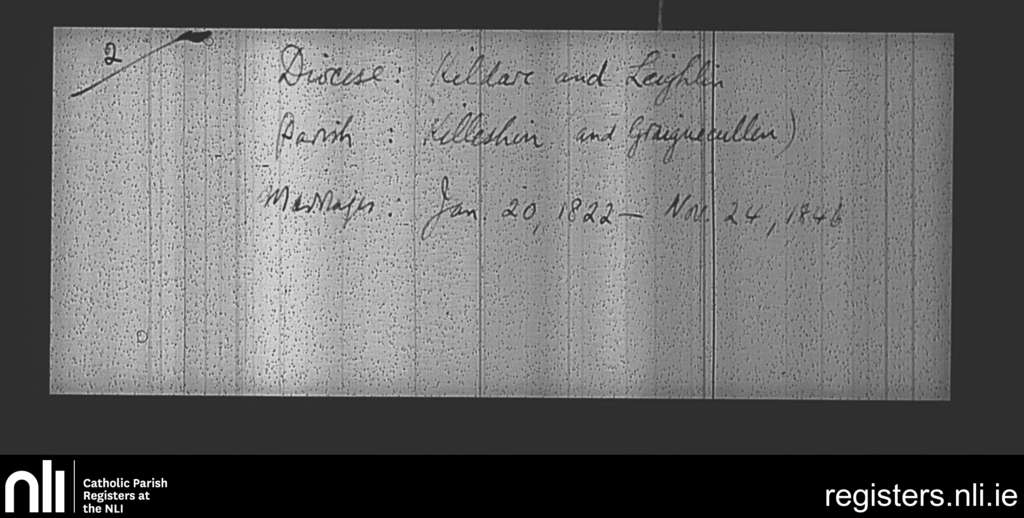 2
Diocese: Kildare and Leighlin
Parish : Killeshin and Graiguecullen)
Marriages: Jan. 20, 1822 — Nov. 24, 1846
nli
Catholic Parish
Registers at
the NLI
registers.nli.ie